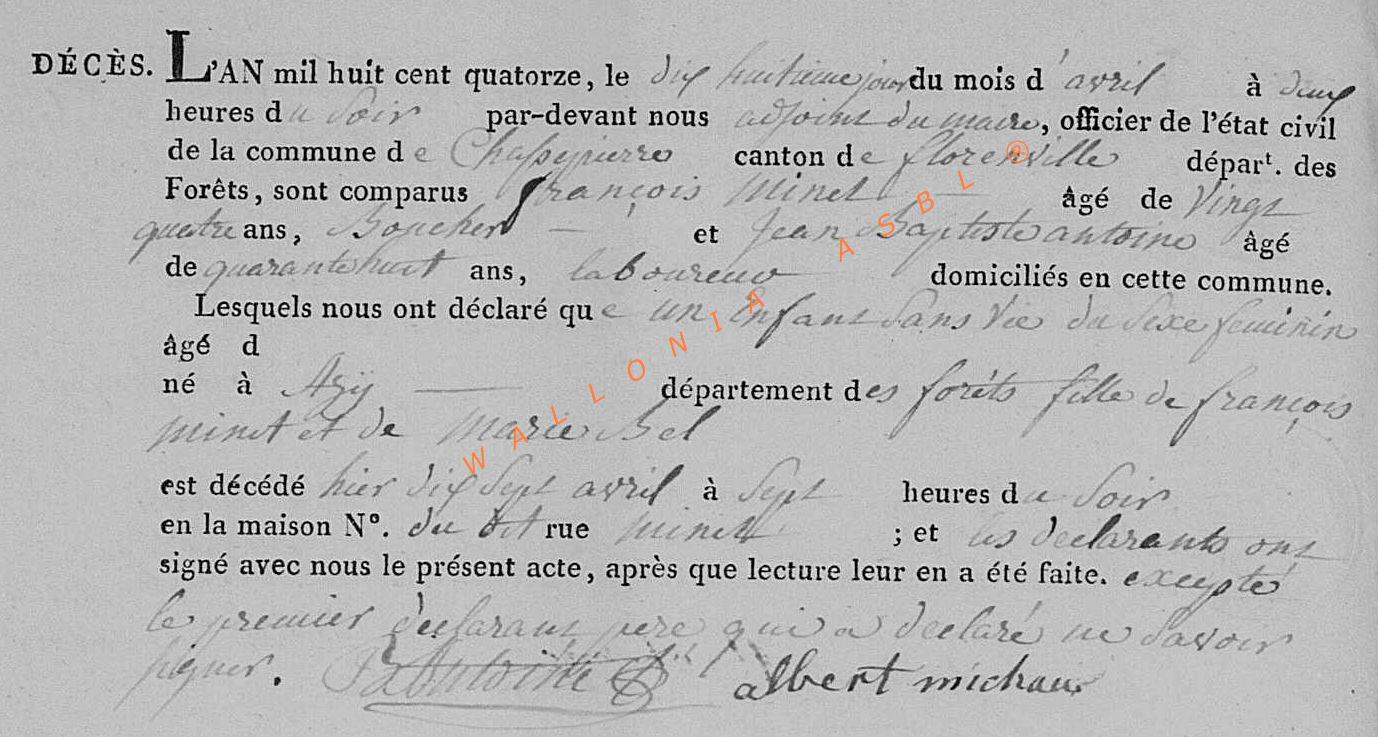 DÉCÈS. L'AN mil huit cent quatorze, le dix huitieme jour du mois d'avril à deux
heures du Soir par-devant nous adjoint du maire, officier de l'état civil
de la commune de Chassepierre canton de florenville départ. des
Forêts, sont comparus françois minet âgé de Vingt
quatre ans, Boucher et Jean Baptiste antoine âgé
de quarante huit ans, laboureur domiciliés en cette commune.
Lesquels nous ont déclaré que un Enfant Sans Vie du Sexe feminin
âgé d
né à Azÿ département des forêts fille de françois
minet et de Marie Bel
est décédé hier dix Sept avril à Sept heures du Soir
en la maison N°. du dit rue minet ; et les declarants ont
signé avec nous le présent acte, après que lecture leur en a été faite. excepté
le premier declarant pere qui a declaré ne Savoir
signer. Antoine albert michaux
WALLONIA ASBL ®